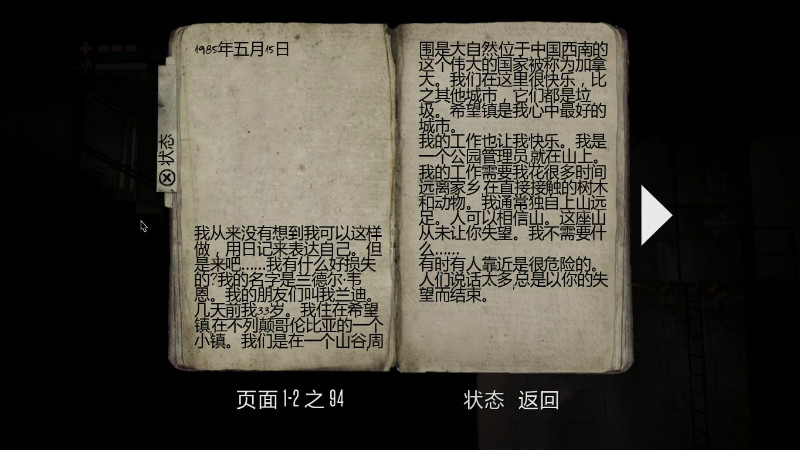 1985年五月15日
我从来没有想到我可以这样
做，用日记来表达自己。但
是来吧......我有什么好损失
的?我的名字是兰德尔·韦
恩。我的朋友们叫我兰迪。
几天前我33岁。我住在希望
镇,在不列颠哥伦比亚的一个
小镇。我们是在一个山谷,周
围是大自然位于中国西南的
这个伟大的国家被称为加拿
大。我们在这里很快乐，比
之其他城市，它们都是垃
圾。希望镇是我心中最好的
城市。
我的工作也让我快乐。我是
一个公园管理员,就在山上。
我的工作需要我花很多时间
远离家乡,在直接接触的树木
和动物。我通常独自上山远
足。人可以相信山。这座山
从未让你失望。我不需要什
么......
有时有人靠近是很危险的。
人们说话太多,总是以你的失
望而结束。
状态
页面 1-2 之 94
状态 返回